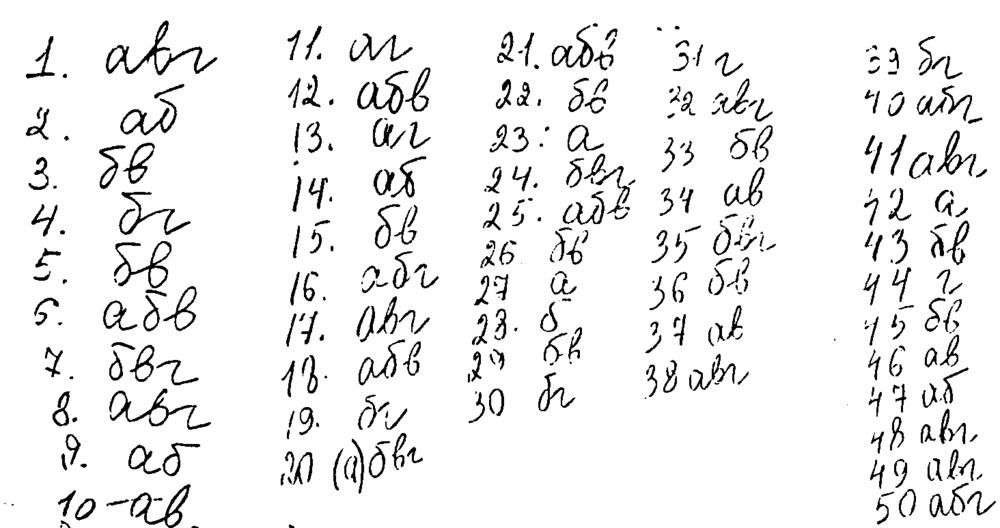 1. авг
2. аб
3. бв
4. бг
5. бв
6. абв
7. бвг
8. авг
9. аб
10 - ав
11. аг
12. абв
13. аг
14. аб
15. бв
16. абг
17. авг
18. абв
19. бг
20 (а) бвг
21. абв
22. бв
23. а
24. бвг
25. абв
26 бв
27 а
28. б
29 бв
30 бг
31 г
32 авг
33 бв
34 ав
35 бвг
36 бв
37 ав
38 авг
39 бг
40 абг
41 авг
42 а
43 бв
44 г
45 бв
46 ав
47 аб
48 авг
49 авг
50 абг